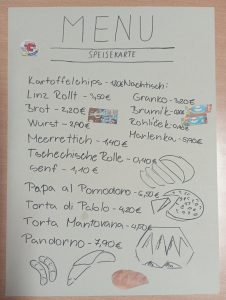 MENU
SPEISEKARTE
Kartoffelchips - 1,80€ Nachtisch:
Linz Rollt - 3,50€ Granko - 3,20€
Brot - 2,20€ Brumík -
Wurst - 2,90€ Rohlíček
Meerrettich - 1,40€ Marlenka - 5,90€
Tschechische Rolle - 0,10€
Senf - 1,10€
Papa al Pomodoro - 6,50€
Torta di Pablo - 4,20€
Torta Mantovana - 4,50€
Pandorno - 7,90€